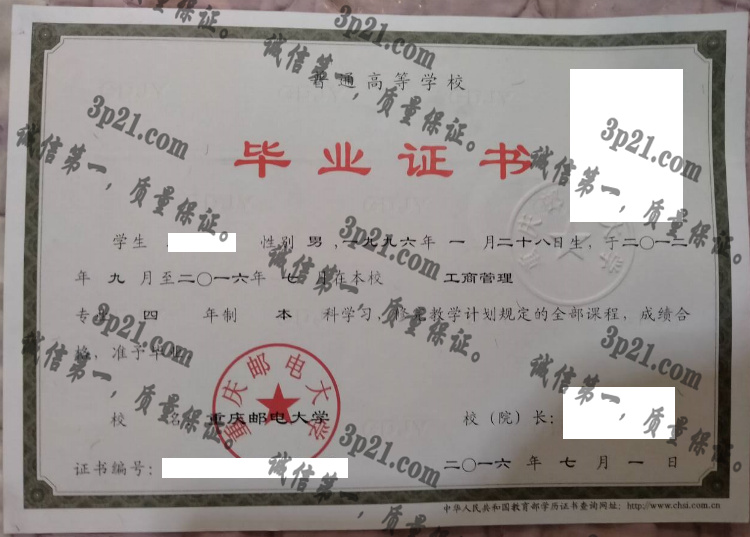 普通高等学校
毕业证书
学生 性别 男，一九九六年 一 月二十八日生，于二〇一二
年 九 月至二〇一六年 七 月在本校 工商管理
专业 四 年制 本 科学习，修完教学计划规定的全部课程，成绩合
格，准予毕业。
校 名：重庆邮电大学 校（院）长：
重庆邮电大学
证书编号： 二〇一六 年 七 月 一 日
中华人民共和国教育部学历证书查询网址：http://www.chsi.com.cn
3p21.com
诚信第一，质量保证。
3p21.com
诚信第一，质量保证。
3p21.com
诚信第一，质量保证。
3p21.com
诚信第一，质量保证。
3p21.com
诚信第一，质量保证。
3p21.com
诚信第一，质量保证。
3p21.com
诚信第一，质量